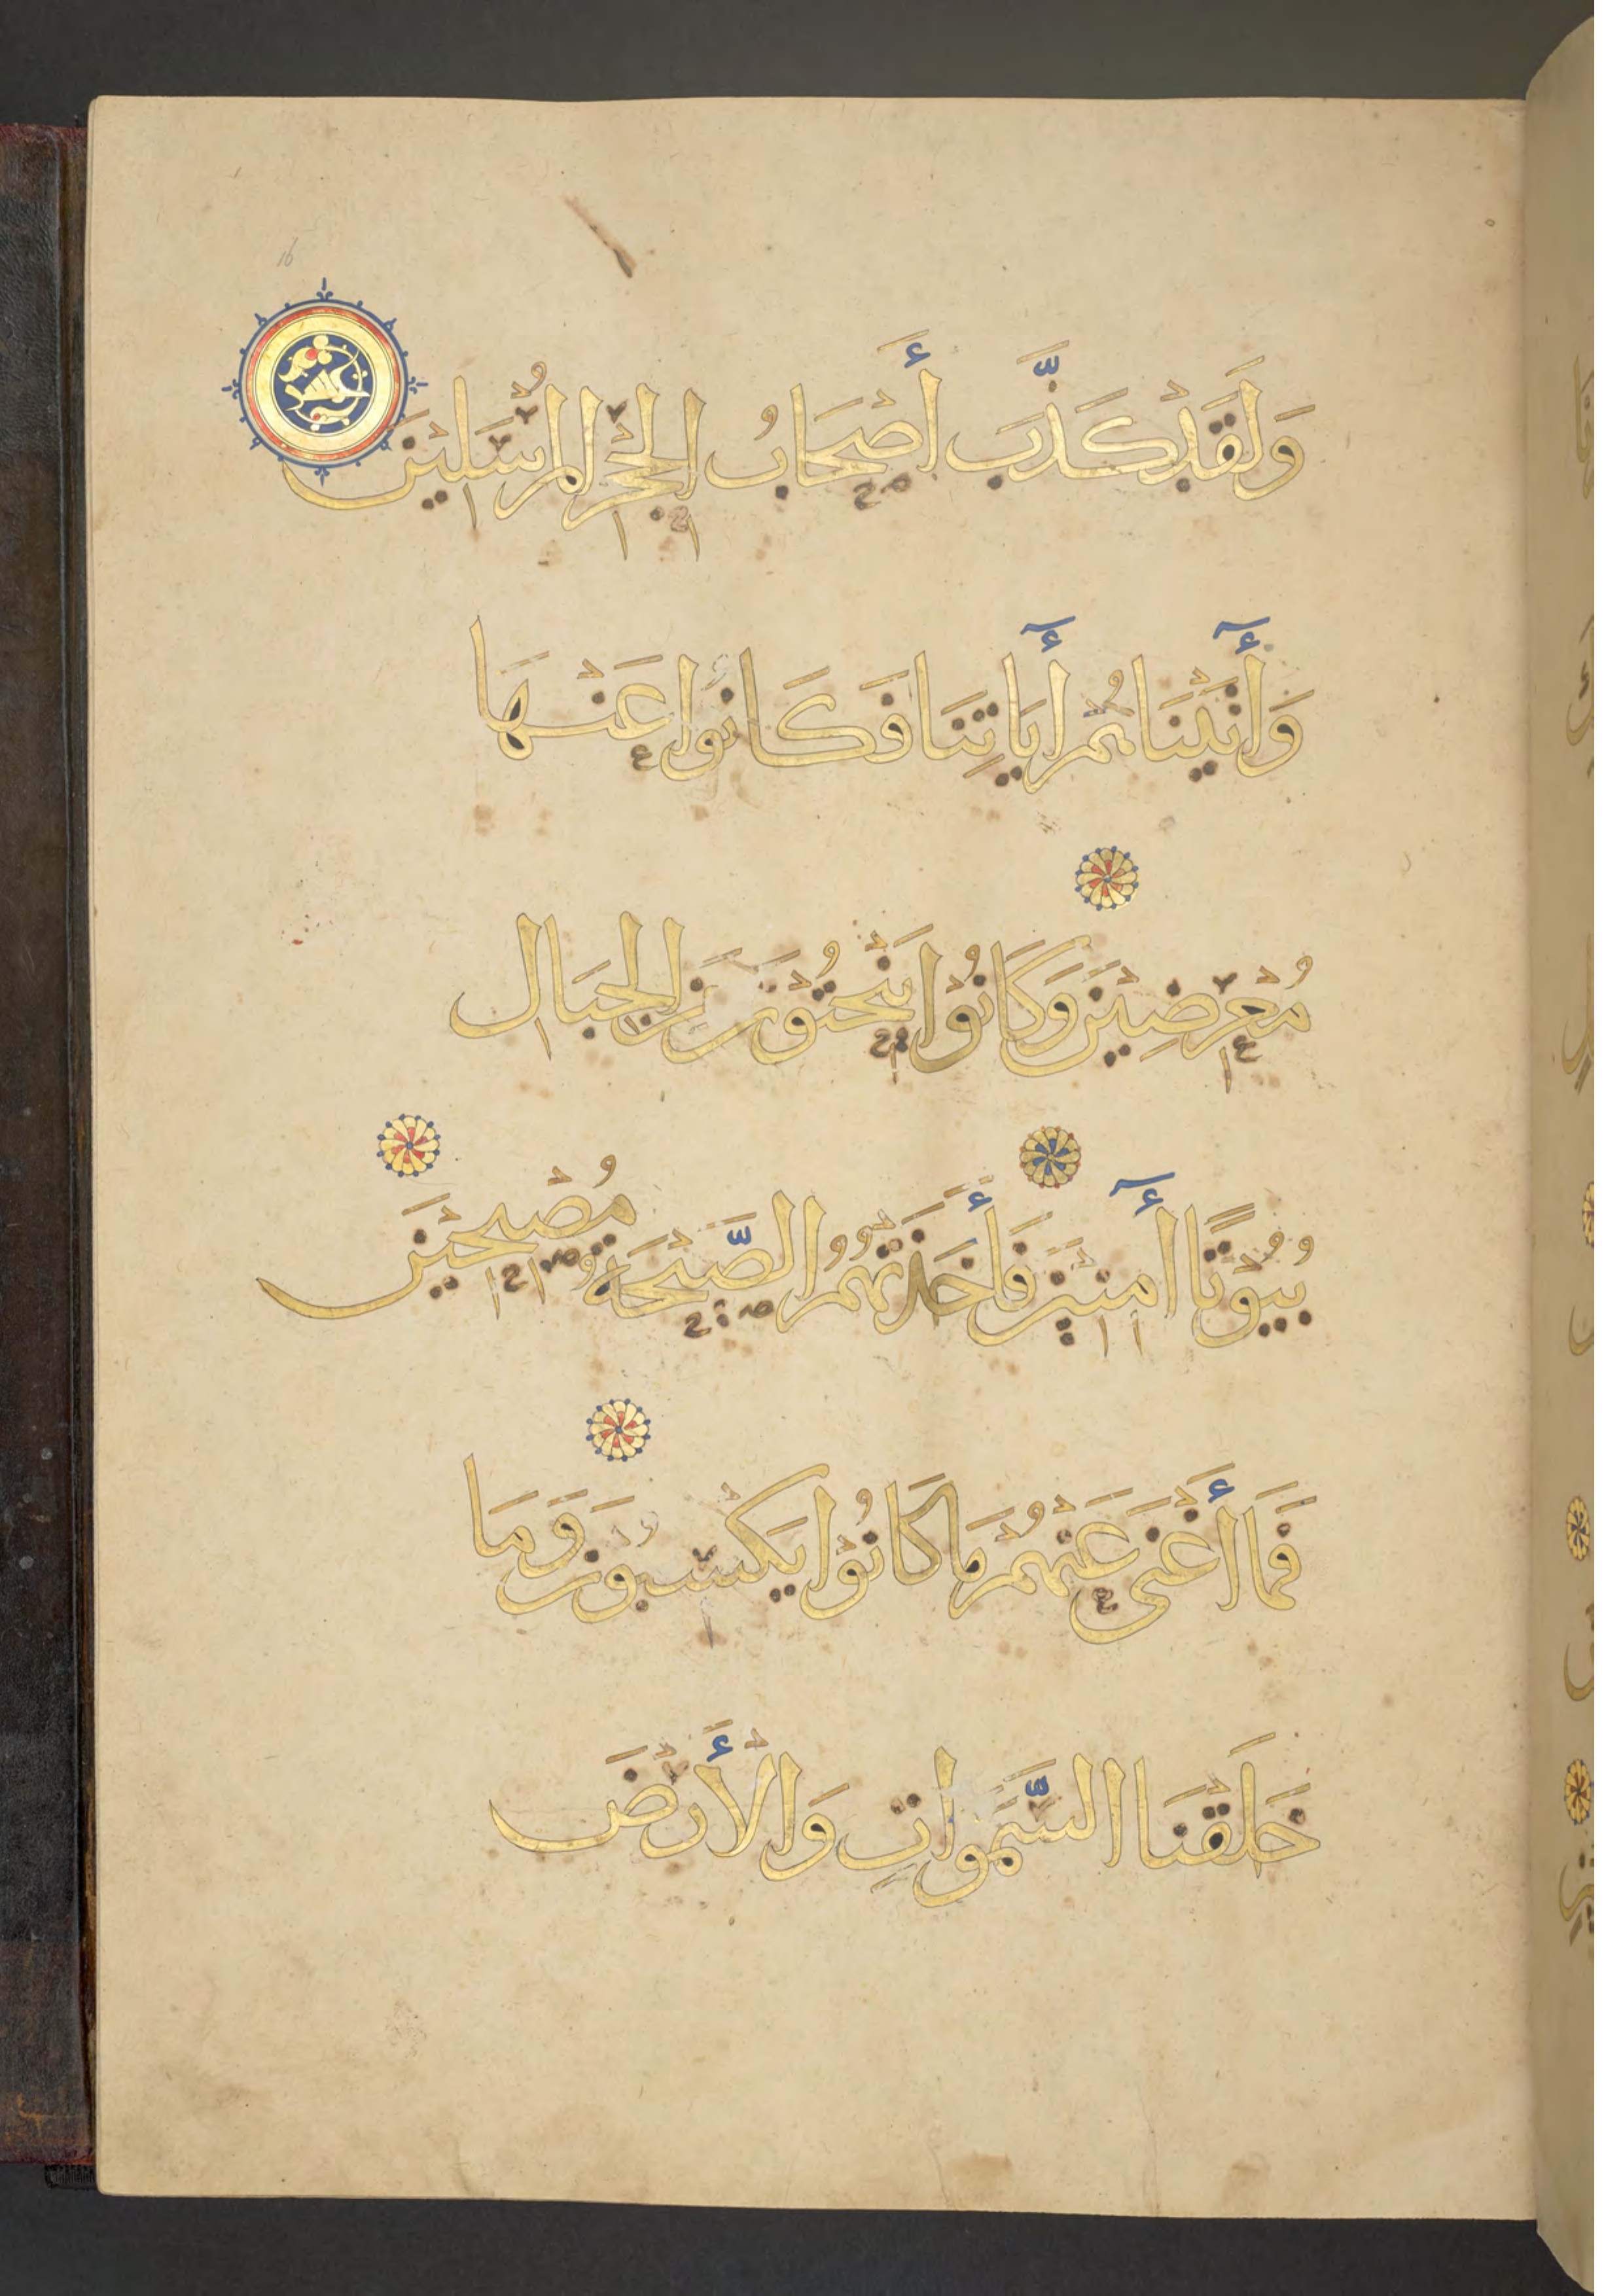 وَلَقَدْ كَذَّبَ أَصْحَابُ الْحِجْرِ الْمُرْسَلِيْنَ
وَأٰتَيْنَاهُمْ أٰيَاتِنَا فَكَانُوْا عَنْهَا
مُعْرِضِيْنَ وَكَانُوْا يَنْحِتُوْنَ مِنَ الْجِبَالِ
بُيُوْتًا اٰمِنِيْنَ فَأَخَذَتْهُمُ الصَّيْحَةُ مُصْبِحِيْنَ
فَمَا أَغْنَى عَنْهُمْ مَا كَانُوْا يَكْسِبُوْنَ وَمَا
خَلَقْنَا السَّمَوَاتِ وَالْأَرْضَ
16